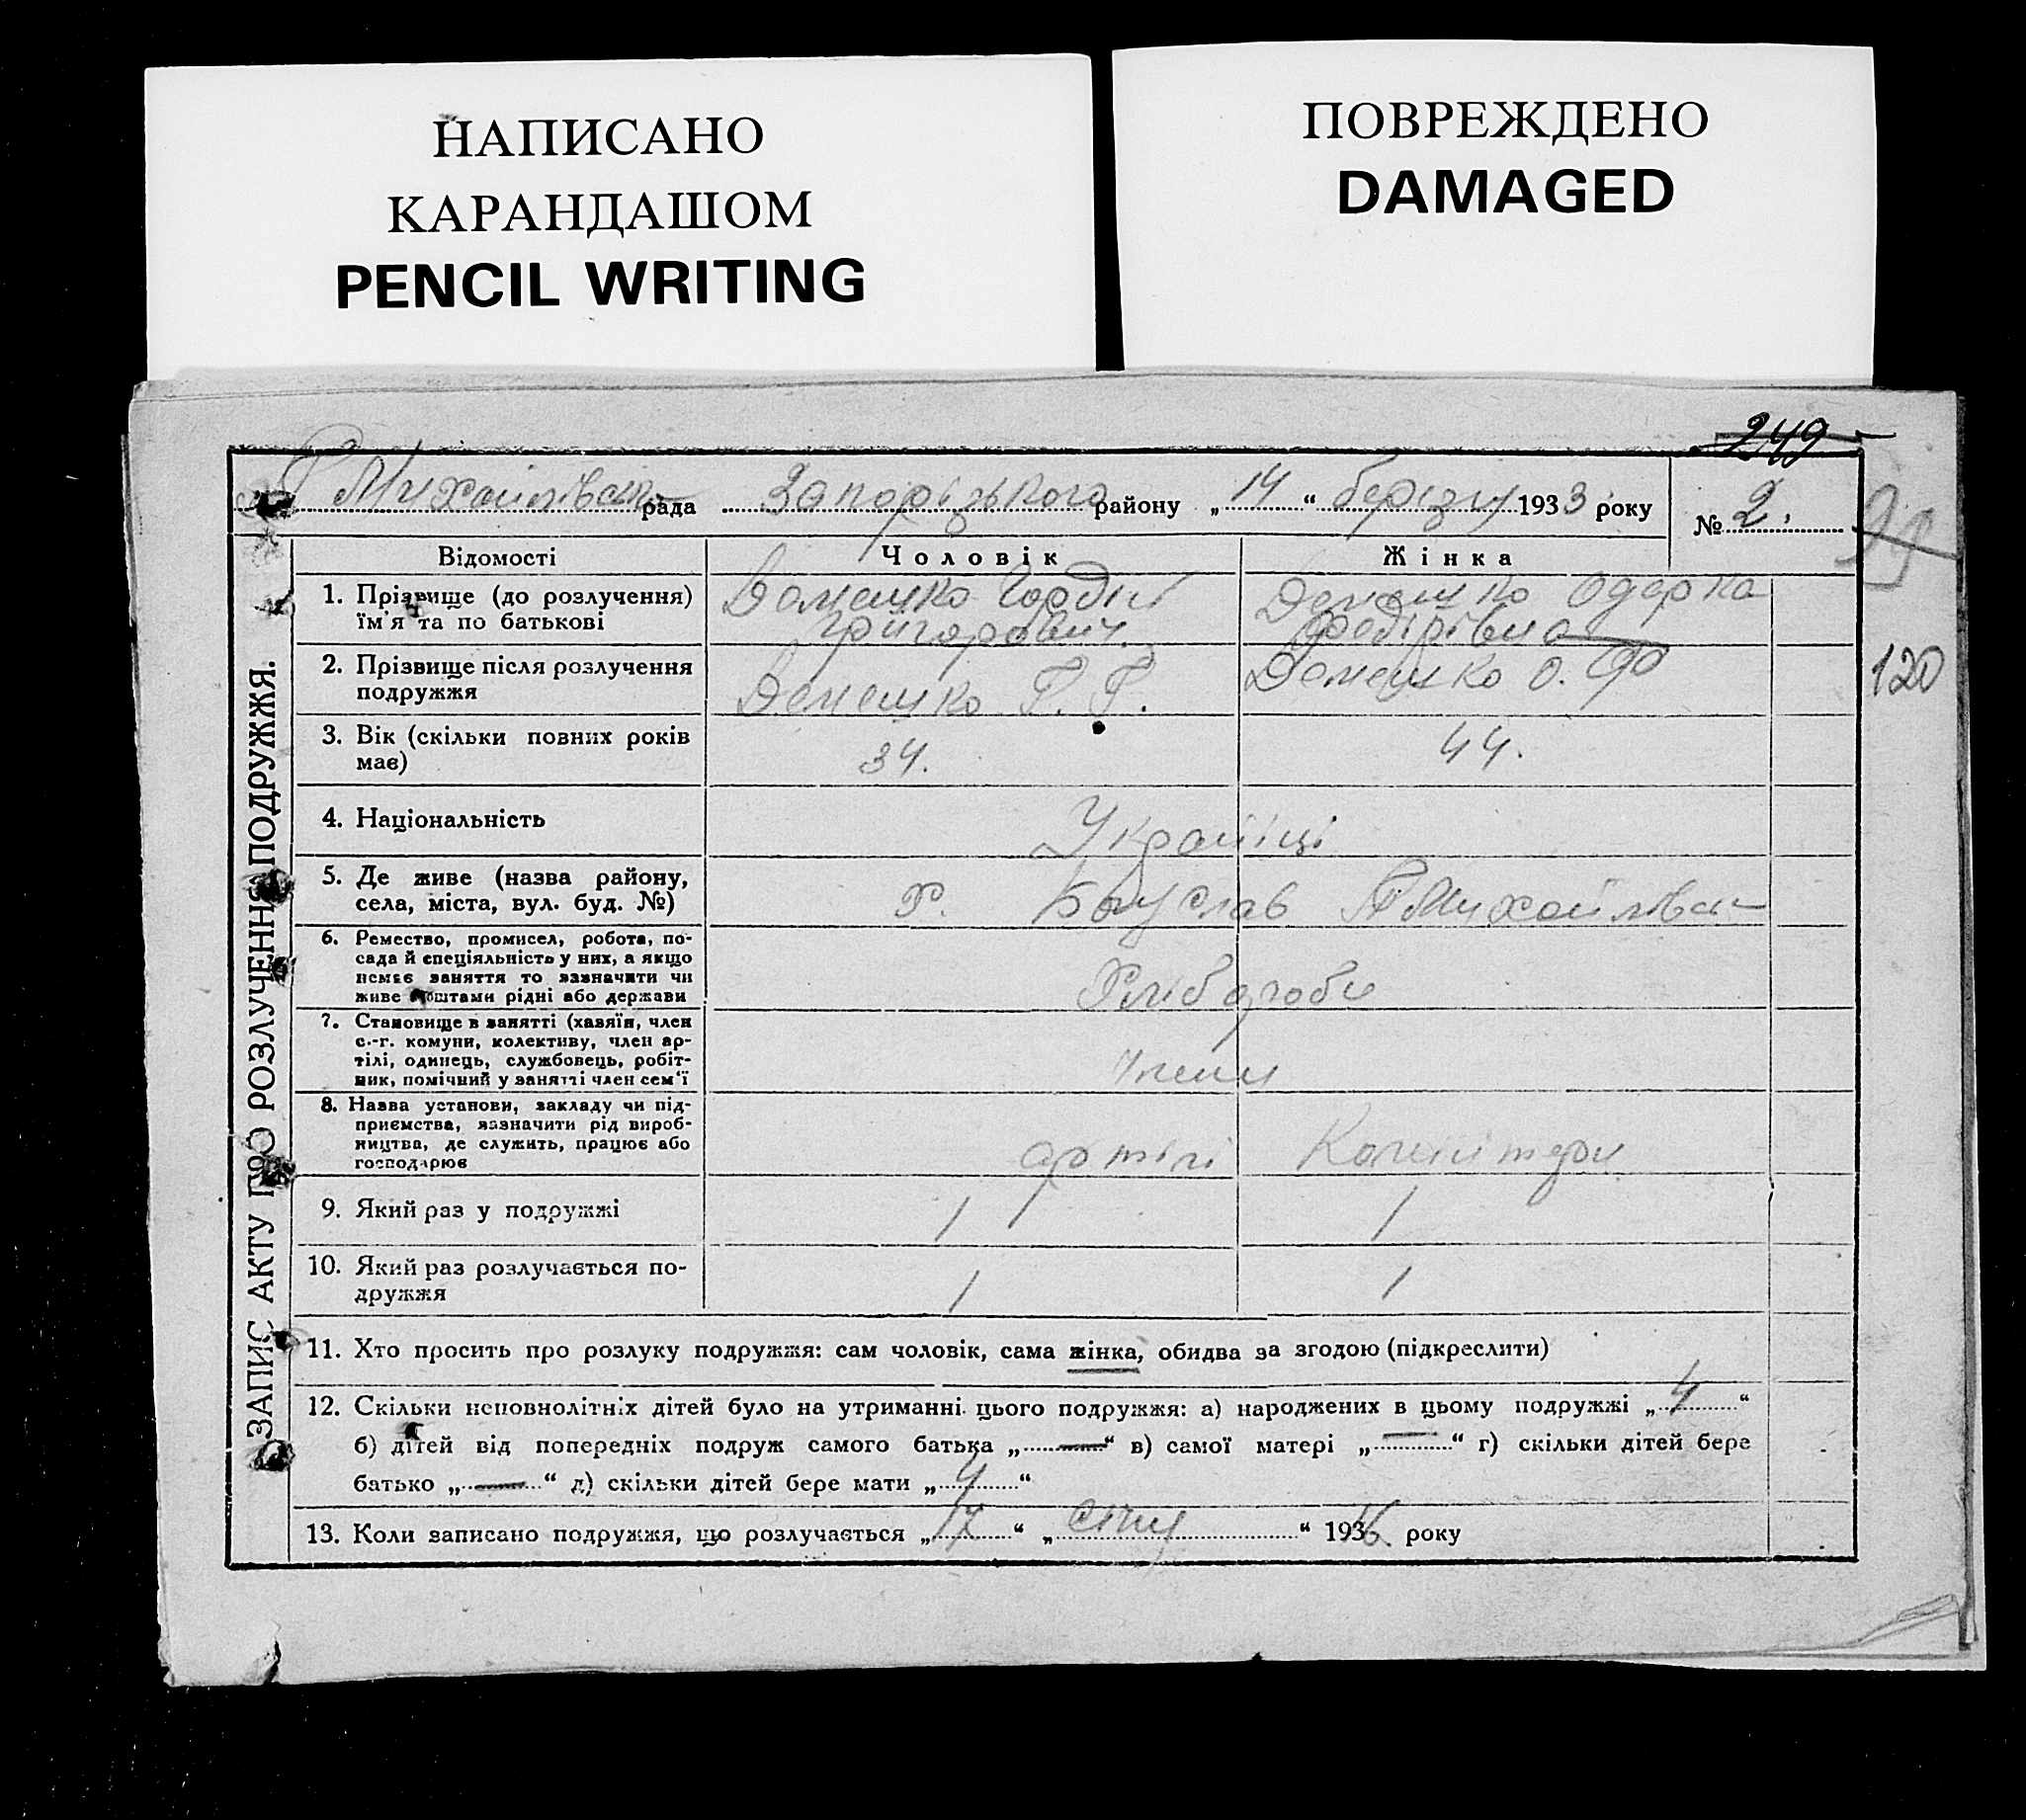 НАПИСАНО
КАРАНДАШОМ
PENCIL WRITING
ПОВРЕЖДЕНО
DAMAGED
249
Г Михайлівська рада Запорізького району „14“ берізня 1933 року № 2.
Відомості Чоловік Жінка
1. Прізвище (до розлучення) їм'я та по батькові
Гордій Григорович
Одарка Федірівна
120
2. Прізвище після розлучення подружжя
Г. Г.
О. Ф
3. Вік (скільки повних років має)
34. 44.
4. Національність
Українці
5. Де живе (назва району, села, міста, вул. буд. №)
Х. Г Михайлівка
6. Ремество, промисел, робота, по-
сада й спеціяльність у них, а якщо
немає заняття то зазначити чи
живе коштами рідні або держави
Хлібороби
7. Становище в занятті (хазяїн, член
с.-г. комуни, колективу, член ар-
тілі, одинець, службовець, робіт-
ник, помічний у занятті член сем'ї
Члени
8. Назва установи, закладу чи під-
приємства, зазначити рід вироб-
ництва, де служить, працює або
господарює
артілі
9. Який раз у подружжі 1 1
10. Який раз розлучається по-
дружжя 1 1
11. Хто просить про розлуку подружжя: сам чоловік, сама жінка, обидва за згодою (підкреслити)
12. Скільки неповнолітніх дітей було на утриманні цього подружжя: а) народжених в цьому подружжі „4“
б) дітей від попередніх подруж самого батька „—“ в) самої матері „—“ г) скільки дітей бере
батько „—“ д) скільки дітей бере мати „4“
13. Коли записано подружжя, що розлучається „17“ „січня“ 193 року
ЗАПИС АКТУ ПРО РОЗЛУЧЕННЯ ПОДРУЖЖЯ.